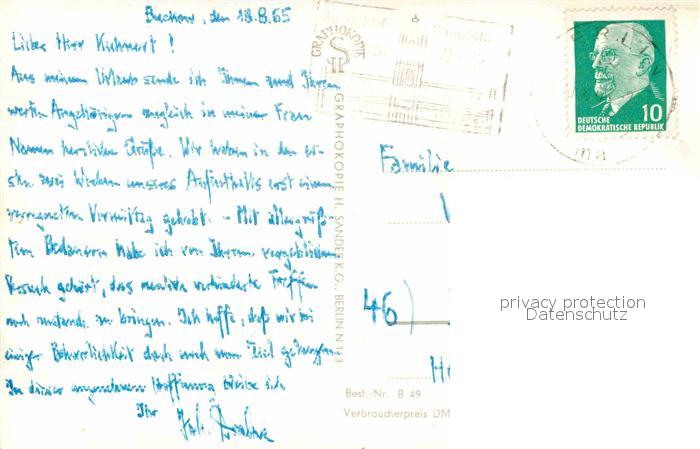 Buckow, den 18.8.65
Lieber Herr Kuhnert!
Aus meinem Urlaub sende ich Ihnen und Ihren
werten Angehörigen zugleich in meiner Frau
Namen herzliche Grüße. Wir haben in den er-
sten zwei Wochen unseres Aufenthalts erst einen
verregneten Vormittag gehabt. - Mit allergröß-
tem Bedauern habe ich von Ihrem vergeblichen
Versuch gehört, das neulich verhinderte Treffen
noch zustande zu bringen. Ich hoffe, daß wir bei
einiger Beharrlichkeit doch noch zum Ziel gelangen.
In dieser angenehmen Hoffnung bleibe ich
Ihr Joh.
GRAPHOKOPIE
GRAPHOKOPIE H. SANDER K.G., BERLIN N 113
DEUTSCHE
DEMOKRATISCHE REPUBLIK
10
Familie
46)
privacy protection
Datenschutz
Best.-Nr. B 49
Verbraucherpreis DM